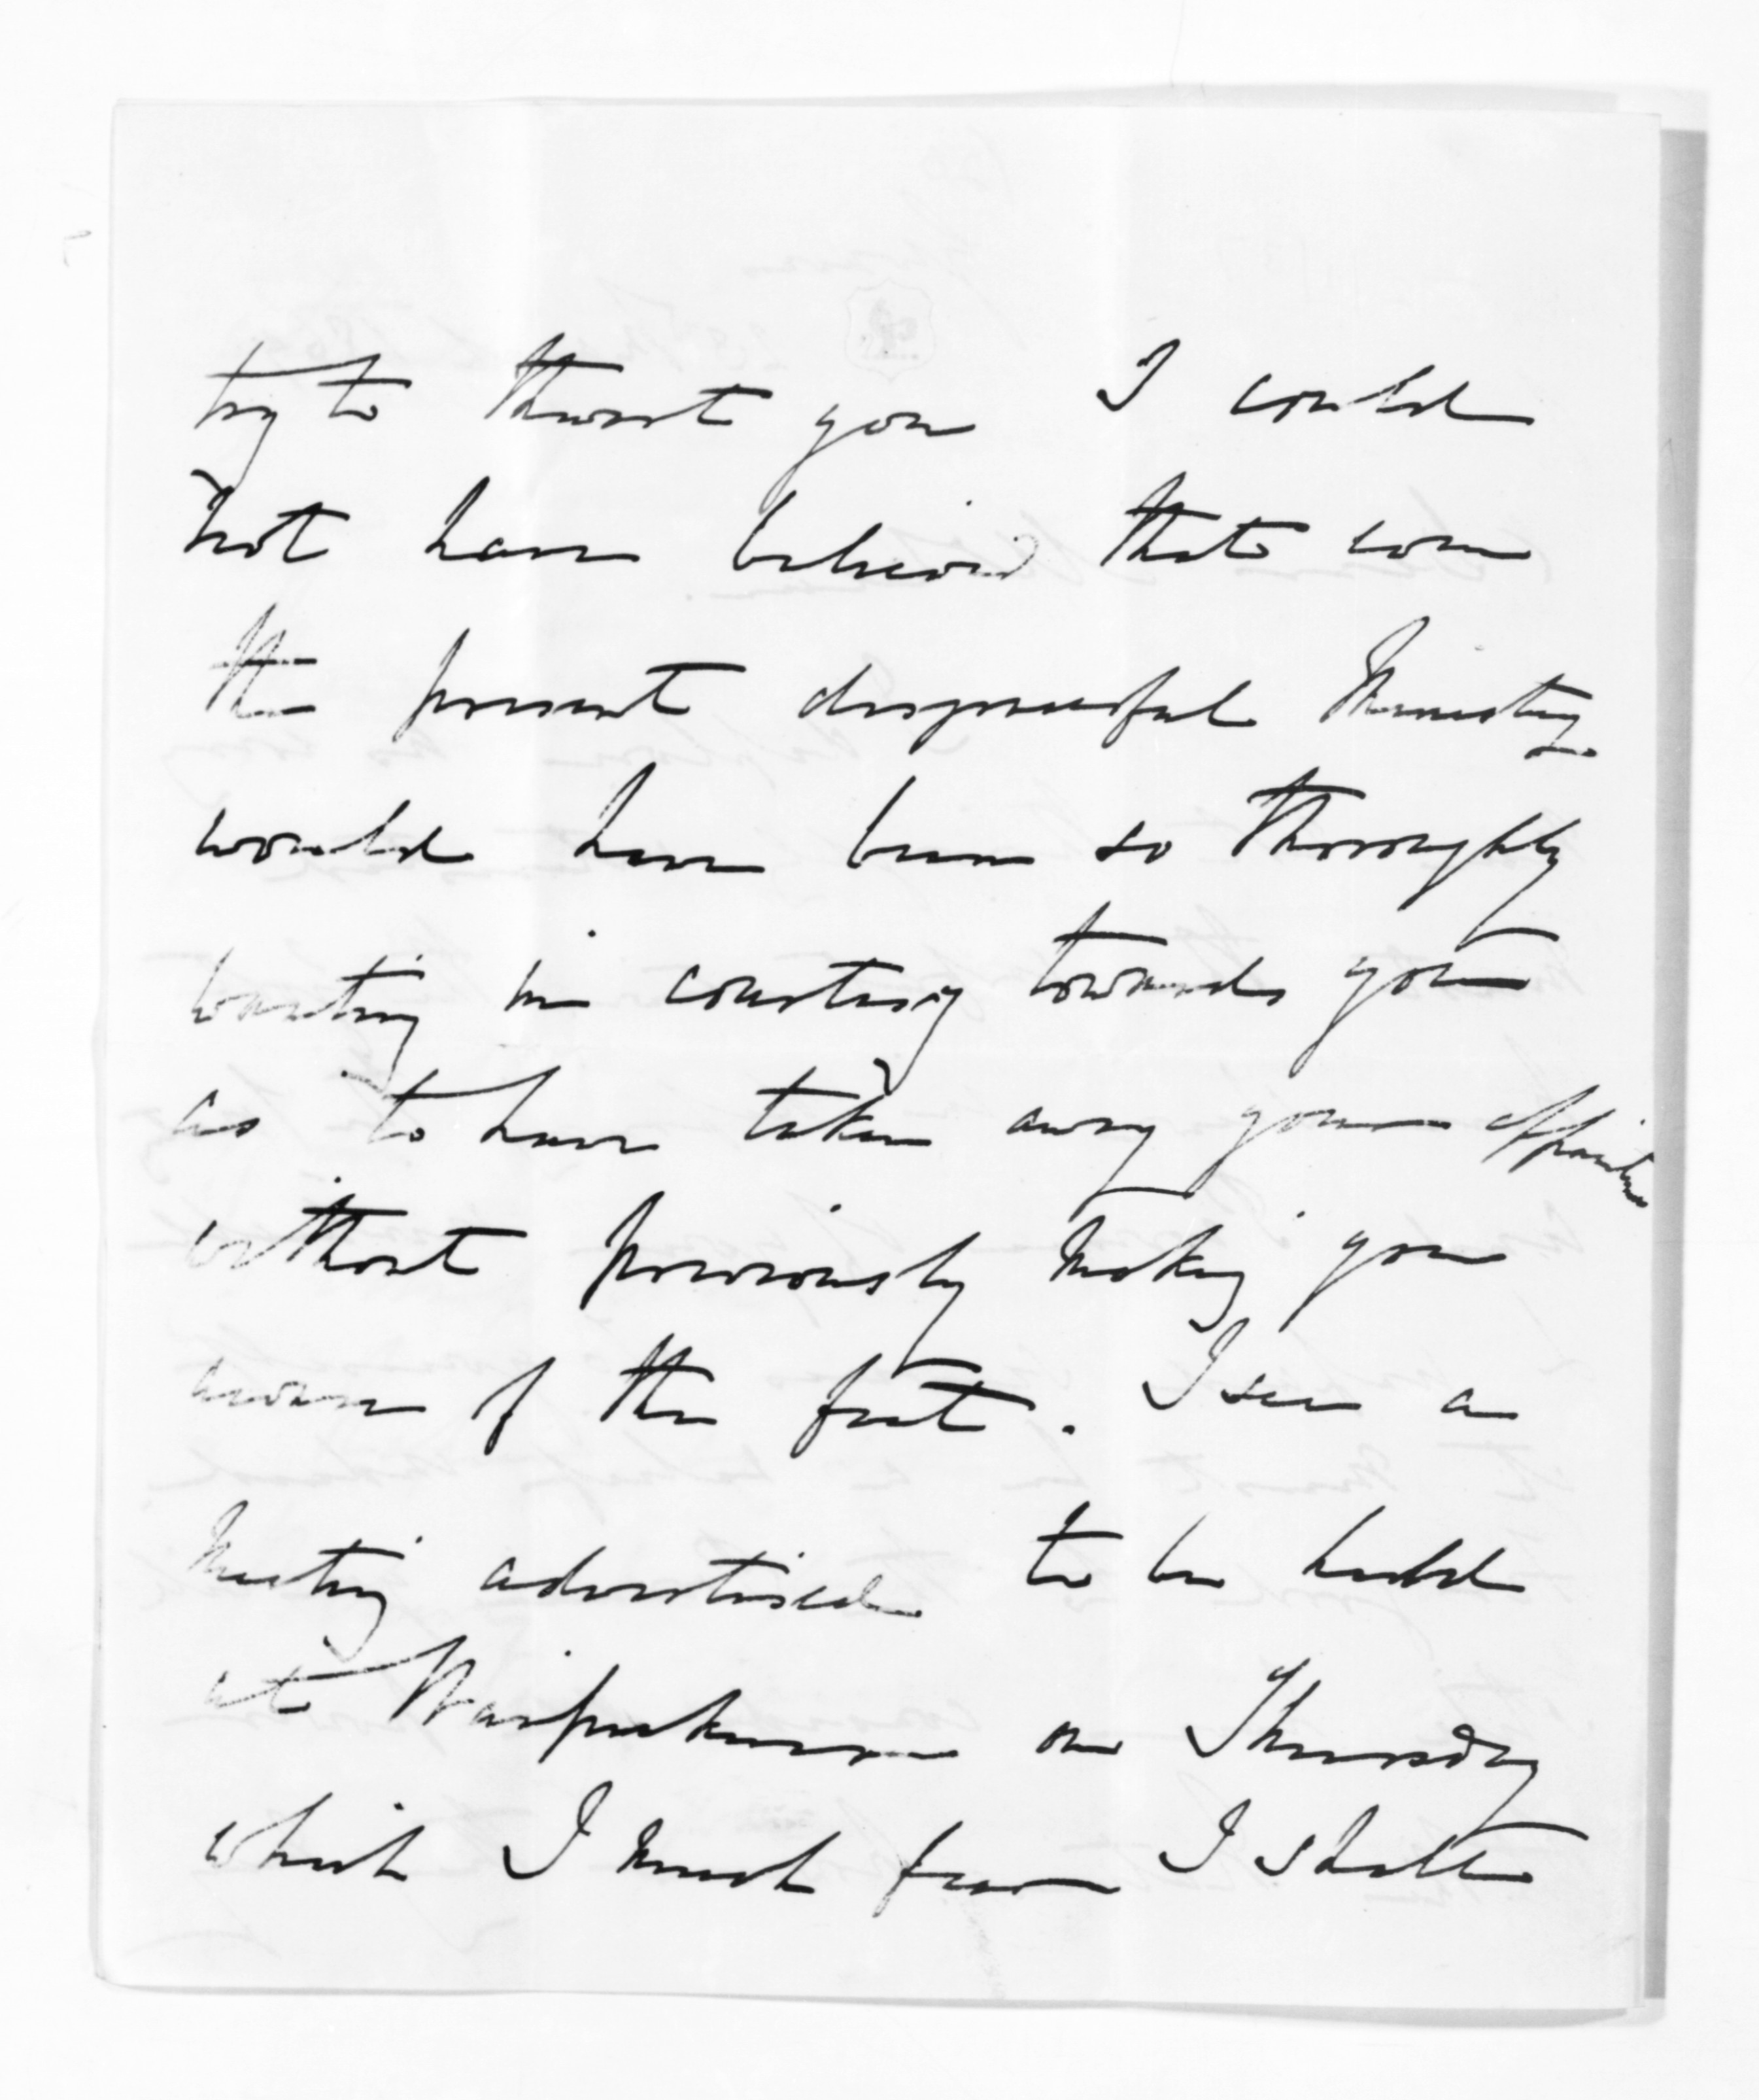 try to thwart you I could
not have believed that even
the present disgraceful Ministry
would have been so thoroughly
wanting in courtesy towards you
as to have taken away your
without previously making you
aware of the fact. I see a
Meeting advertised to be held
at Waipukurau on Thursday
which I much fear I shall